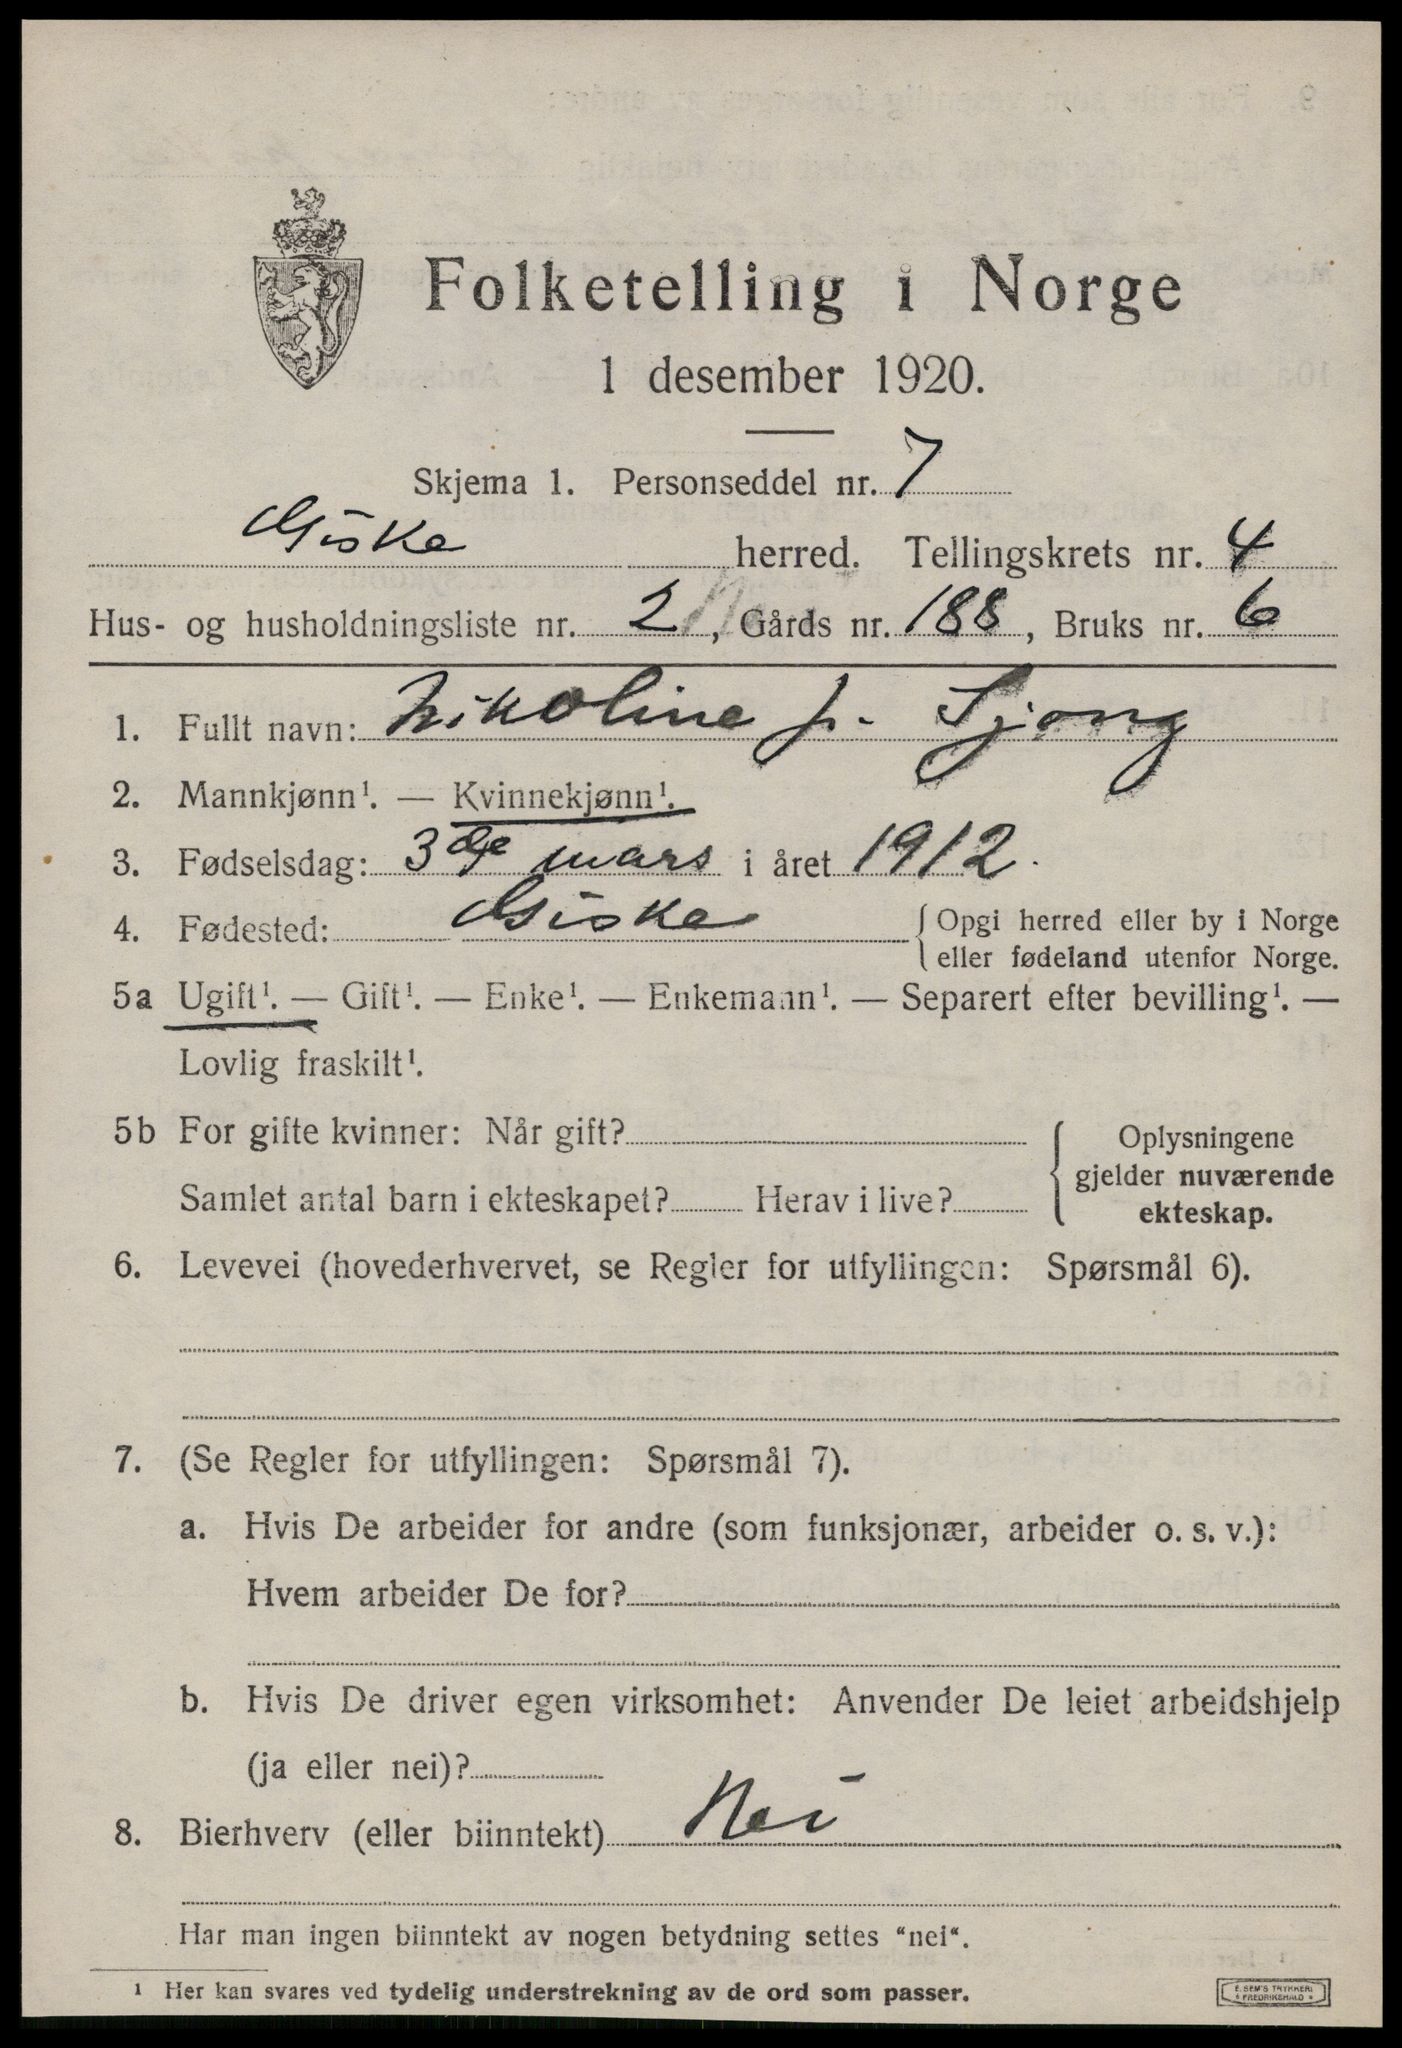 Folketelling i Norge
1 desember 1920.
Skjema 1. Personseddel nr. 7
Giske herred. Tellingskrets nr. 4
Hus- og husholdningsliste nr. 2, Gårds nr. 188, Bruks nr. 6
1. Fullt navn: Nikoline J. Sjong
2. Mannkjønn¹. — Kvinnekjønn¹.
3. Fødselsdag: 3de mars i året 1912.
4. Fødested: Giske { Opgi herred eller by i Norge
eller fødeland utenfor Norge.
5a Ugift¹. — Gift¹. — Enke¹. — Enkemann¹. — Separert efter bevilling¹. —
Lovlig fraskilt¹.
5b For gifte kvinner: Når gift?
Samlet antal barn i ekteskapet? Herav i live?
{ Oplysningene
gjelder nuværende
ekteskap.
6. Levevei (hovederhvervet, se Regler for utfyllingen: Spørsmål 6).
7. (Se Regler for utfyllingen: Spørsmål 7).
a. Hvis De arbeider for andre (som funksjonær, arbeider o. s. v.):
Hvem arbeider De for?
b. Hvis De driver egen virksomhet: Anvender De leiet arbeidshjelp
(ja eller nei)?
8. Bierhverv (eller biinntekt) Nei
Har man ingen biinntekt av nogen betydning settes "nei".
¹ Her kan svares ved tydelig understrekning av de ord som passer.
E. SEM'S TRYKKERI
FREDRIKSHALD